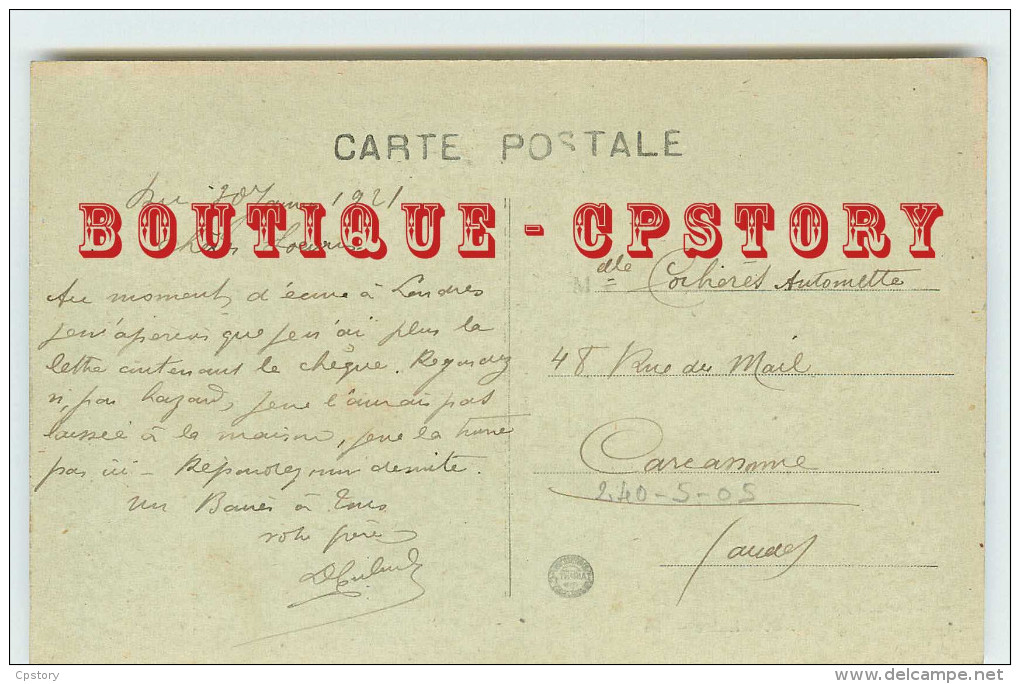 CARTE POSTALE
1921
BOUTIQUE - CPSTORY
Au moment d'écrire à Londres
je m'aperçois que je n'ai plus la
lettre contenant le chèque. Regardez
si, par hazard, je ne l'aurais pas
laissée à la maison, je ne la trouve
pas ici - Répondez moi de suite.
Un Baiser à Tous
votre père
Mdlle Cocherès Antoinette
48 Rue du Mail
Carcassonne
240-5-05
(aude)
Cpstory
delcampe.net